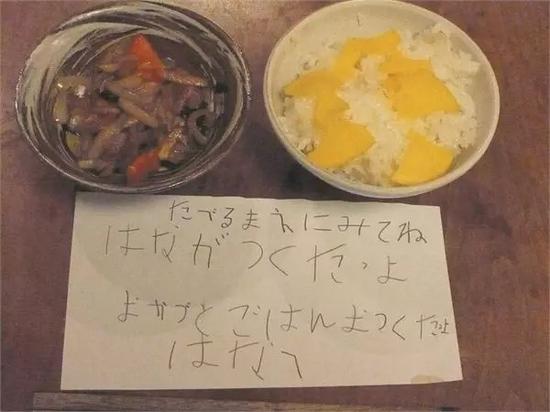 たべるまえにみてね
はながつくたよ
おかづとごはんおつくたよ
はなへ